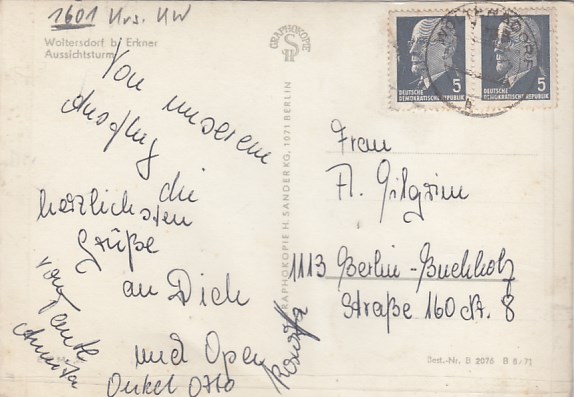 1601 Krs. KW
Woltersdorf b. Erkner
Aussichtsturm
Von unserem
Ausflug
die
herzlichsten
Grüße
an Dich
und Open
von Tante
Annita
Onkel Otto
GRAPHOKOPIE
GRAPHOKOPIE H. SANDER KG, 1071 BERLIN
WOLTERSDORF
5
DEUTSCHE
DEMOKRATISCHE REPUBLIK
5
DEUTSCHE
DEMOKRATISCHE REPUBLIK
Frau
A. Gilgrim
1113 Berlin-Buchholz
Straße 160 Nr. 8
Best.-Nr. B 2076 B 8/71